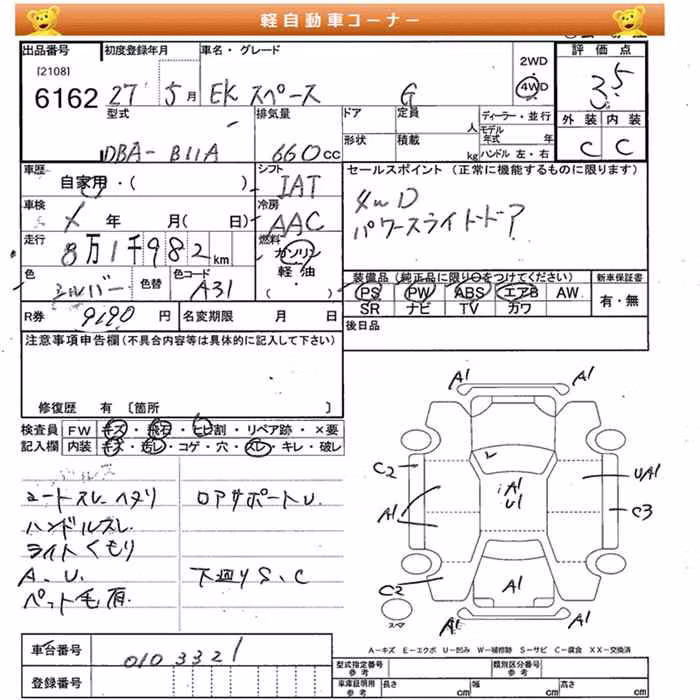 軽自動車コーナー
出品番号 初度登録年月 車名・グレード 評価点
[2108]
6162 27 5月 EK スペース G 2WD 4WD 3.5
型式 排気量 ドア 定員 人 ディーラー・並行 外装 内装
DBA-B11A 660cc 形状 積載 kg モデル年式 年 ハンドル 左・右 C C
車歴 シフト セールスポイント (正常に機能するものに限ります)
自家用・( ) IAT
車検 年 月( 日) 冷房 AAC 4WD
パワースライドドア
走行 8万1千982km 燃料 ガソリン
軽油
・( )
色 シルバー 色替 色コード A31
装備品 (純正品に限り○をつけてください) 新車保証書
PS PW ABS エアB AW 有・無
SR ナビ TV カワ
R券 9190円 名変期限 月 日
後日品
注意事項申告欄(不具合内容等は具体的に記入して下さい)
修復歴 有 〔箇所 〕
検査員 FW キズ・飛石・ヒビ割・リペア跡・×要
記入欄 内装 キズ・汚レ・コゲ・穴・スレ・キレ・破レ
シートスレ・ヘタリ
ハンドルスレ
ライトくもり
A.U.
ペット毛有
ロアサポートU.
下廻りS、C
A1 A1
C2 UA1
A1 A1 U1 C3
C2 A1
A1 A1
スペア
A-キズ E-エクボ U-凹み W-補修跡 S-サビ C-腐食 XX-交換済
車台番号 0103321
登録番号
型式指定番号 参考 類別区分番号 参考
車庫証明用 参考 長さ cm 幅 cm 高さ cm